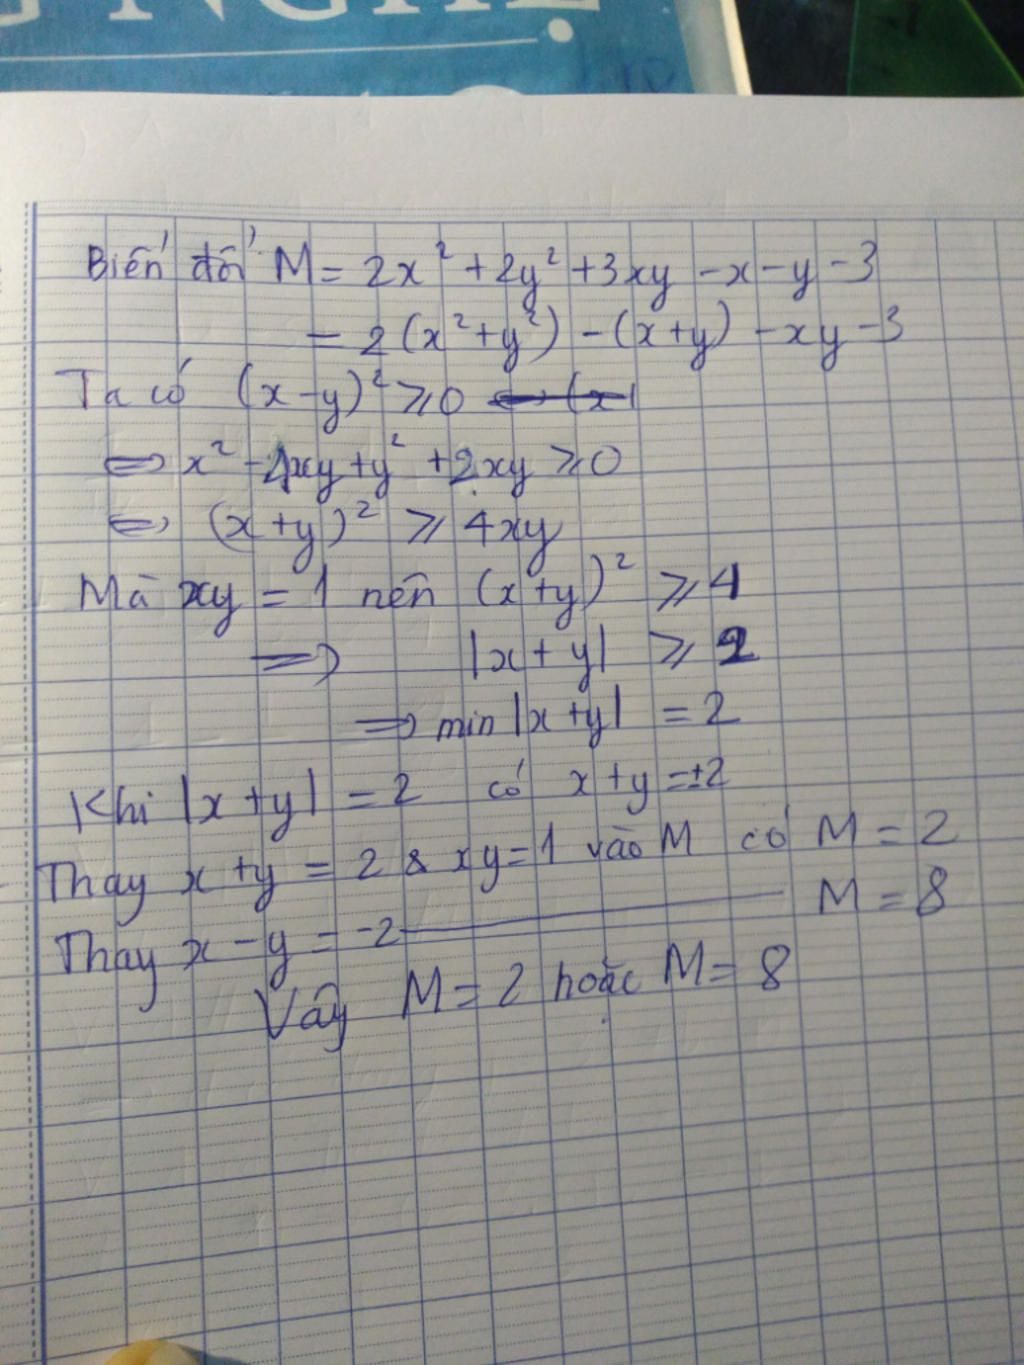 NGHỆ
Biến đổi M = 2x² + 2y² + 3xy - x - y - 3
= 2(x² + y²) - (x+y) - xy - 3
Ta có (x-y)² ⩾ 0
<=> x² - 4xy + y² + 2xy ⩾ 0
<=> (x+y)² ⩾ 4xy
Mà xy = 1 nên (x+y)² ⩾ 4
=> |x+y| ⩾ 2
=> min |x+y| = 2
Khi |x+y| = 2 có x+y = ±2
Thay x+y = 2 & xy=1 vào M có M = 2
Thay x-y = -2 ——— M = 8
Vậy M = 2 hoặc M = 8